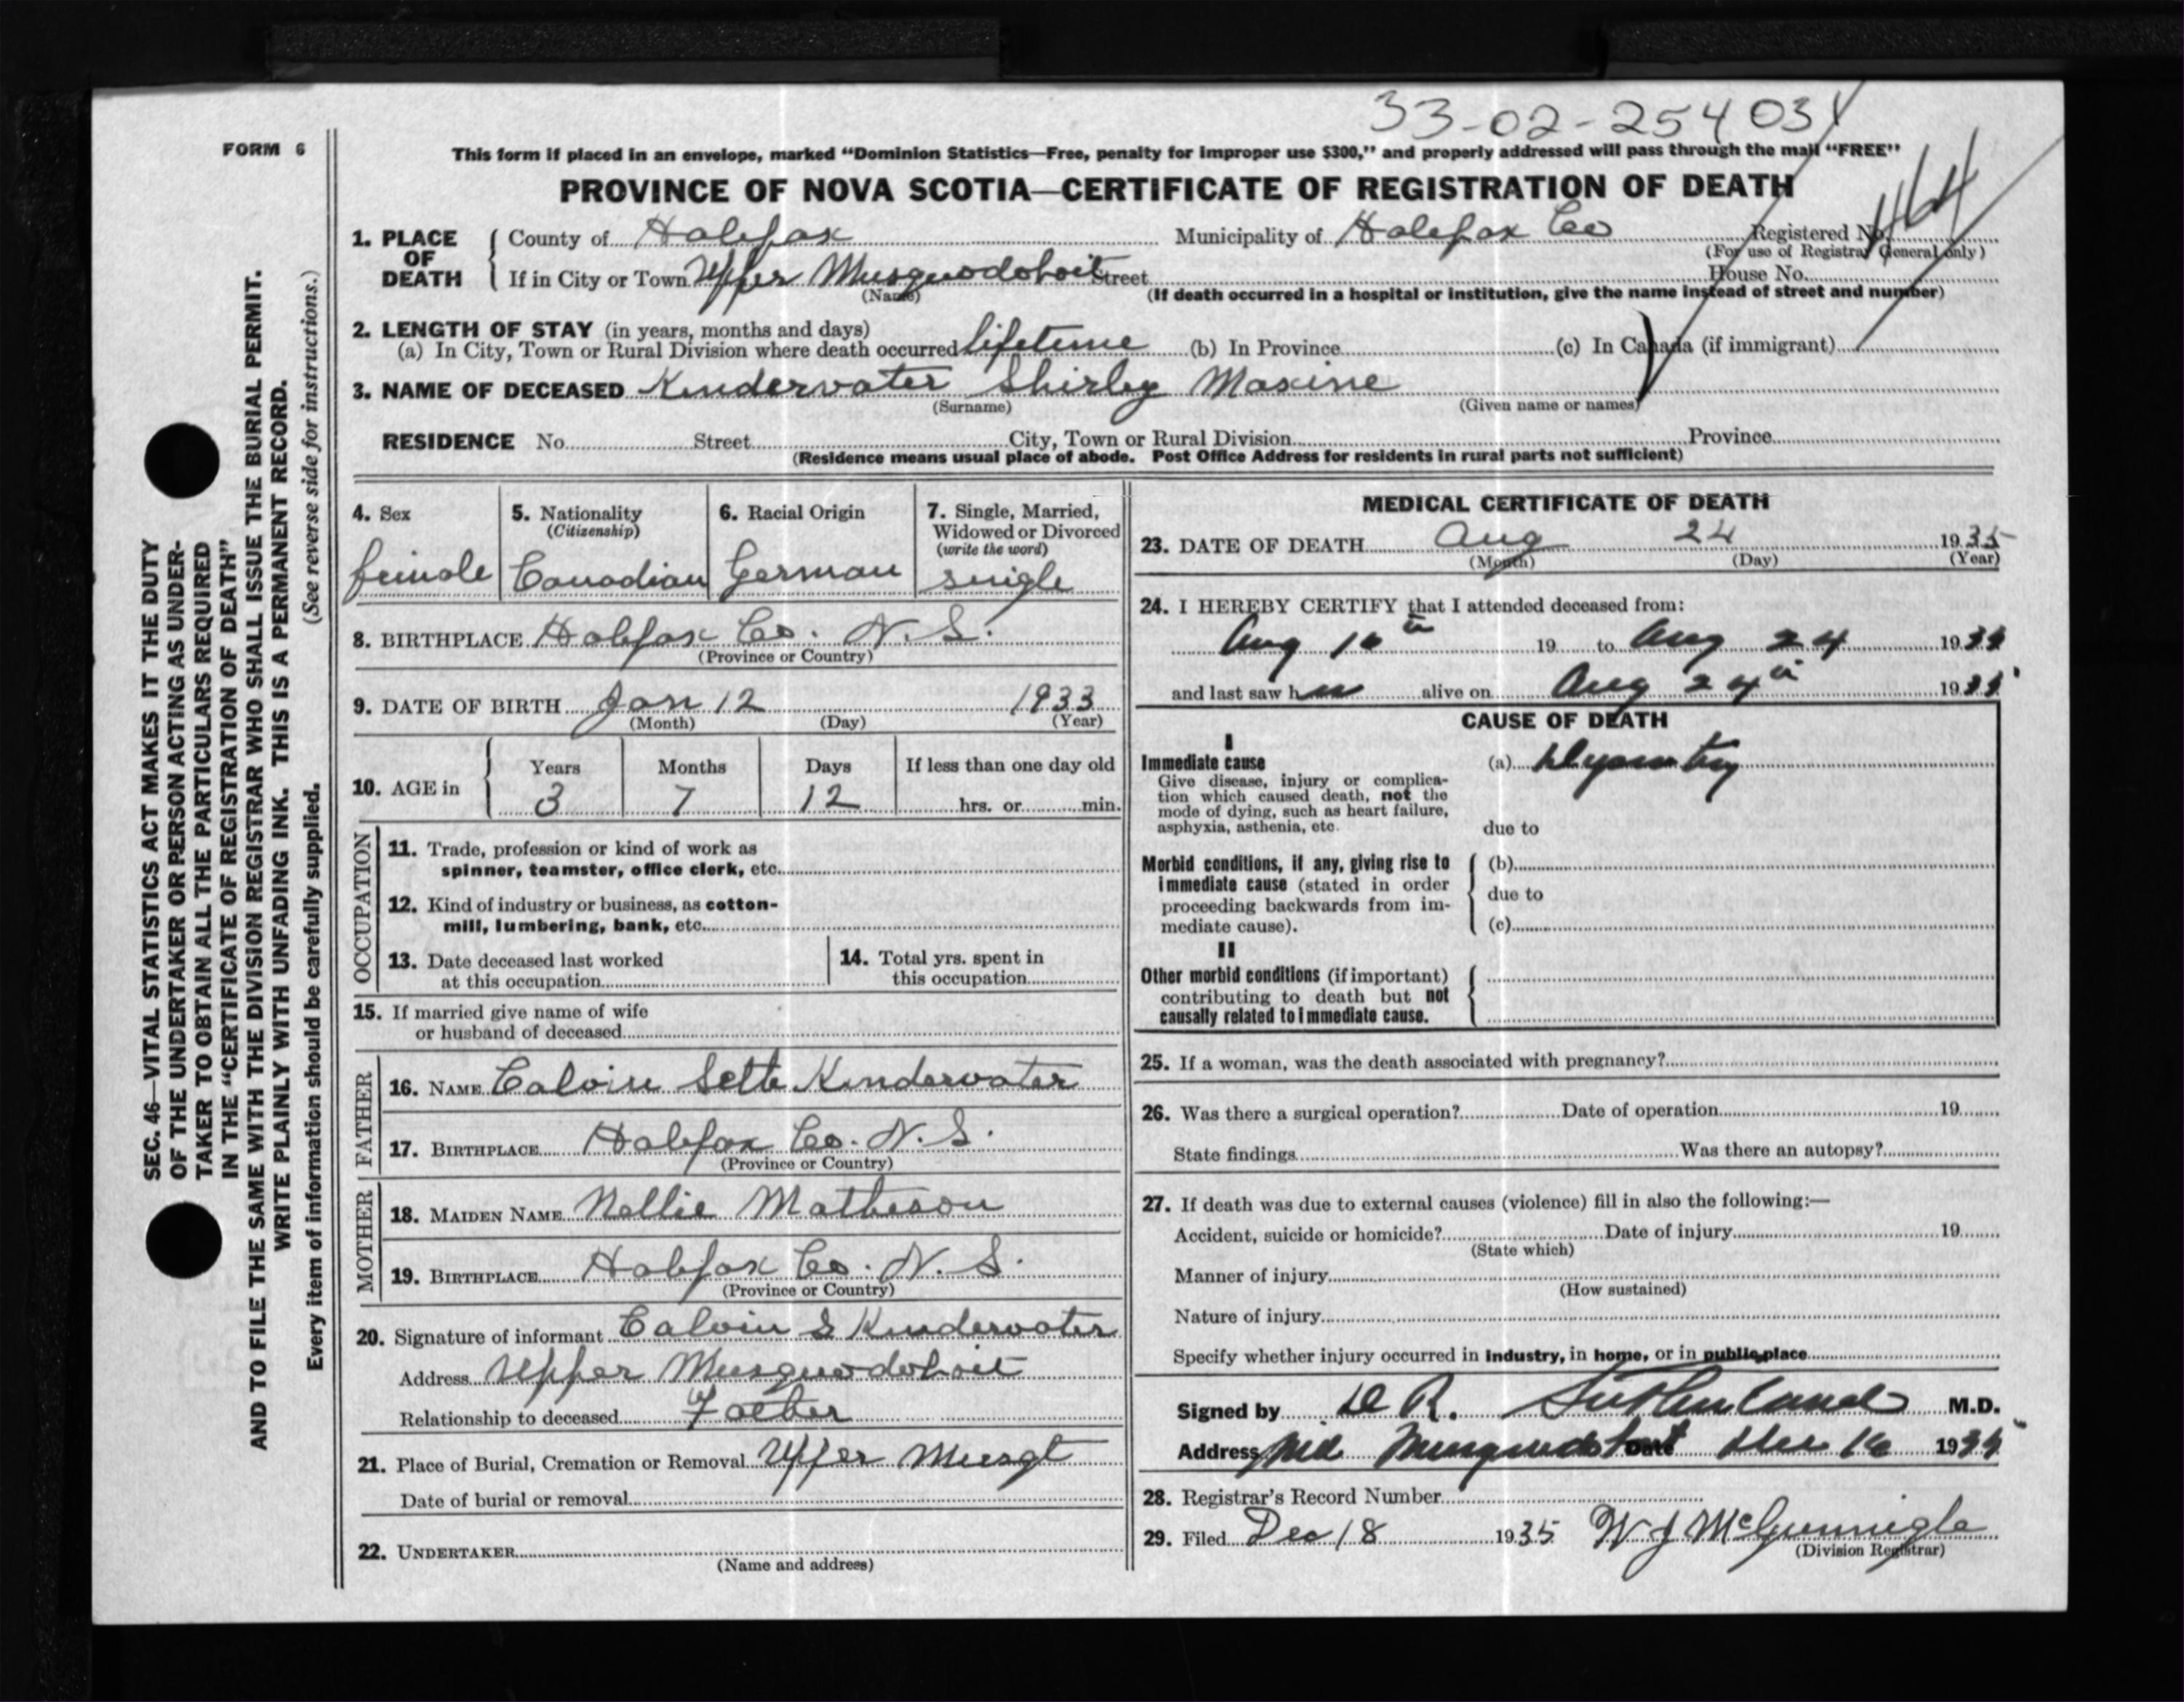 33-02-254031
FORM 6
This form if placed in an envelope, marked "Dominion Statistics—Free, penalty for improper use $300," and properly addressed will pass through the mail "FREE"
PROVINCE OF NOVA SCOTIA—CERTIFICATE OF REGISTRATION OF DEATH
1. PLACE OF DEATH { County of Halifax Municipality of Halifax Co Registered No.
(For use of Registrar General only)
If in City or Town Upper Musquodoboit Street House No.
(Name) (If death occurred in a hospital or institution, give the name instead of street and number)
2. LENGTH OF STAY (in years, months and days)
(a) In City, Town or Rural Division where death occurred lifetime (b) In Province (c) In Canada (if immigrant)
3. NAME OF DECEASED Kindervater Shirley Maxine
(Surname) (Given name or names)
RESIDENCE No. Street City, Town or Rural Division Province
(Residence means usual place of abode. Post Office Address for residents in rural parts not sufficient)
SEC. 46—VITAL STATISTICS ACT MAKES IT THE DUTY
OF THE UNDERTAKER OR PERSON ACTING AS UNDER-
TAKER TO OBTAIN ALL THE PARTICULARS REQUIRED
IN THE "CERTIFICATE OF REGISTRATION OF DEATH"
AND TO FILE THE SAME WITH THE DIVISION REGISTRAR WHO SHALL ISSUE THE BURIAL PERMIT.
WRITE PLAINLY WITH UNFADING INK. THIS IS A PERMANENT RECORD.
Every item of information should be carefully supplied. (See reverse side for instructions.)
4. Sex female
5. Nationality (Citizenship) Canadian
6. Racial Origin German
7. Single, Married, Widowed or Divorced (write the word) single
8. BIRTHPLACE Halifax Co. N.S.
(Province or Country)
9. DATE OF BIRTH Jan 12 1933
(Month) (Day) (Year)
10. AGE in { Years 3 Months 7 Days 12 If less than one day old hrs. or min.
OCCUPATION
11. Trade, profession or kind of work as
spinner, teamster, office clerk, etc.
12. Kind of industry or business, as cotton-
mill, lumbering, bank, etc.
13. Date deceased last worked
at this occupation
14. Total yrs. spent in
this occupation
15. If married give name of wife
or husband of deceased
FATHER
16. NAME Calvin Kindervater
17. BIRTHPLACE Halifax Co. N.S.
(Province or Country)
MOTHER
18. MAIDEN NAME Nellie Matheson
19. BIRTHPLACE Halifax Co. N.S.
(Province or Country)
20. Signature of informant Calvin S Kindervater
Address Upper Musquodoboit
Relationship to deceased Father
21. Place of Burial, Cremation or Removal Upper Musqt
Date of burial or removal
22. UNDERTAKER
(Name and address)
MEDICAL CERTIFICATE OF DEATH
23. DATE OF DEATH Aug 24 1935
(Month) (Day) (Year)
24. I HEREBY CERTIFY that I attended deceased from:
Aug 19 to Aug 24 19
and last saw h alive on Aug 24th 19
CAUSE OF DEATH
I
Immediate cause (a) Dysentry
Give disease, injury or complica-
tion which caused death, not the
mode of dying, such as heart failure,
asphyxia, asthenia, etc. due to
Morbid conditions, if any, giving rise to (b)
immediate cause (stated in order due to
proceeding backwards from im-
mediate cause). (c)
II
Other morbid conditions (if important)
contributing to death but not
causally related to immediate cause.
25. If a woman, was the death associated with pregnancy?
26. Was there a surgical operation? Date of operation 19
State findings Was there an autopsy?
27. If death was due to external causes (violence) fill in also the following:—
Accident, suicide or homicide? Date of injury 19
(State which)
Manner of injury
(How sustained)
Nature of injury
Specify whether injury occurred in industry, in home, or in public place
Signed by D R. Sutherland M.D.
Address Mid Musquodoboit Date Dec 16 19
28. Registrar's Record Number
29. Filed Dec 18 1935 W J McGunnigle
(Division Registrar)